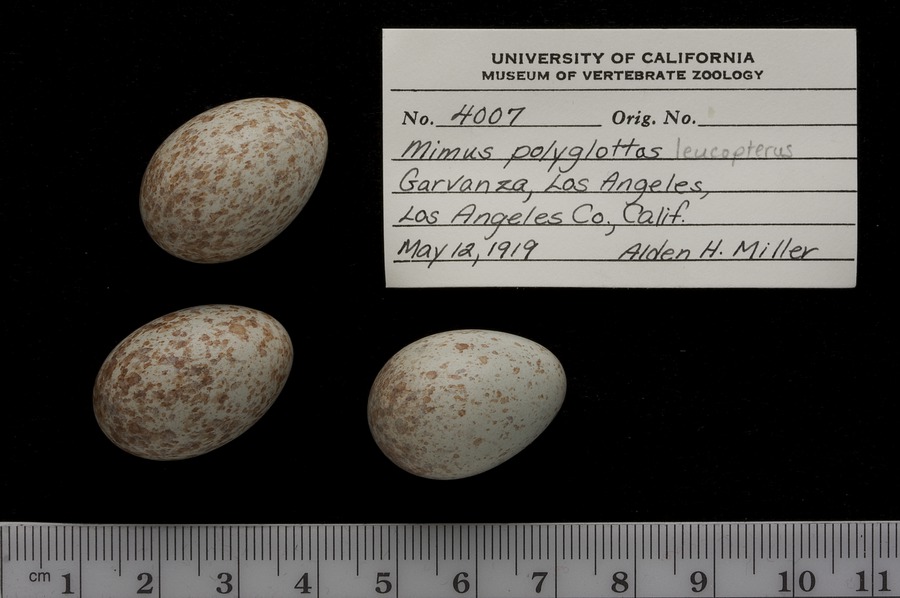 UNIVERSITY OF CALIFORNIA
MUSEUM OF VERTEBRATE ZOOLOGY
No. 4007 Orig. No.
Mimus polyglottos leucopterus
Garvanza, Los Angeles,
Los Angeles Co., Calif.
May 12, 1919 Alden H. Miller
cm 1 2 3 4 5 6 7 8 9 10 11